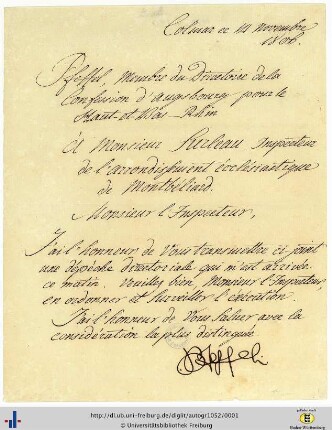 Colmar ce 14 novembre
1806.
Pfeffel, Membre du Directoire de la
Confession d'Augsbourg pour le
Haut et Bas-Rhin
à Monsieur Inspecteur
de l'arrondissement ecclésiastique
de Montbéliard.
Monsieur l'Inspecteur,
J'ai l'honneur de vous transmettre ci joint
une dépêche directoriale qui m'est arrivée
ce matin. Veuillez bien, Monsieur l'Inspecteur,
en ordonner et surveiller l'exécution.
J'ai l'honneur de vous saluer avec la
considération la plus distinguée
Pfeffel
http://dl.ub.uni-freiburg.de/diglit/autogr1052/0001
© Universitätsbibliothek Freiburg